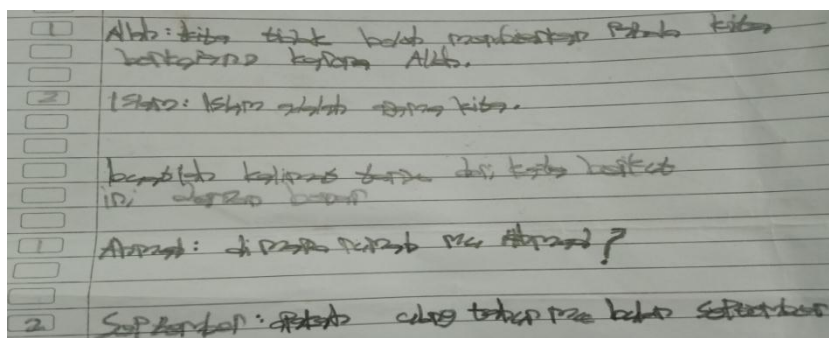 1 Allah: kita tidak boleh membiarkan kita
bertanya kepada Allah.
2 Islam: Islam adalah agama kita.
buatlah kalimat tanya dari kata berikut
ini dengan benar
1 Ahmad: di mana rumah mu Ahmad?
2 September: ulang tahun mu bulan September